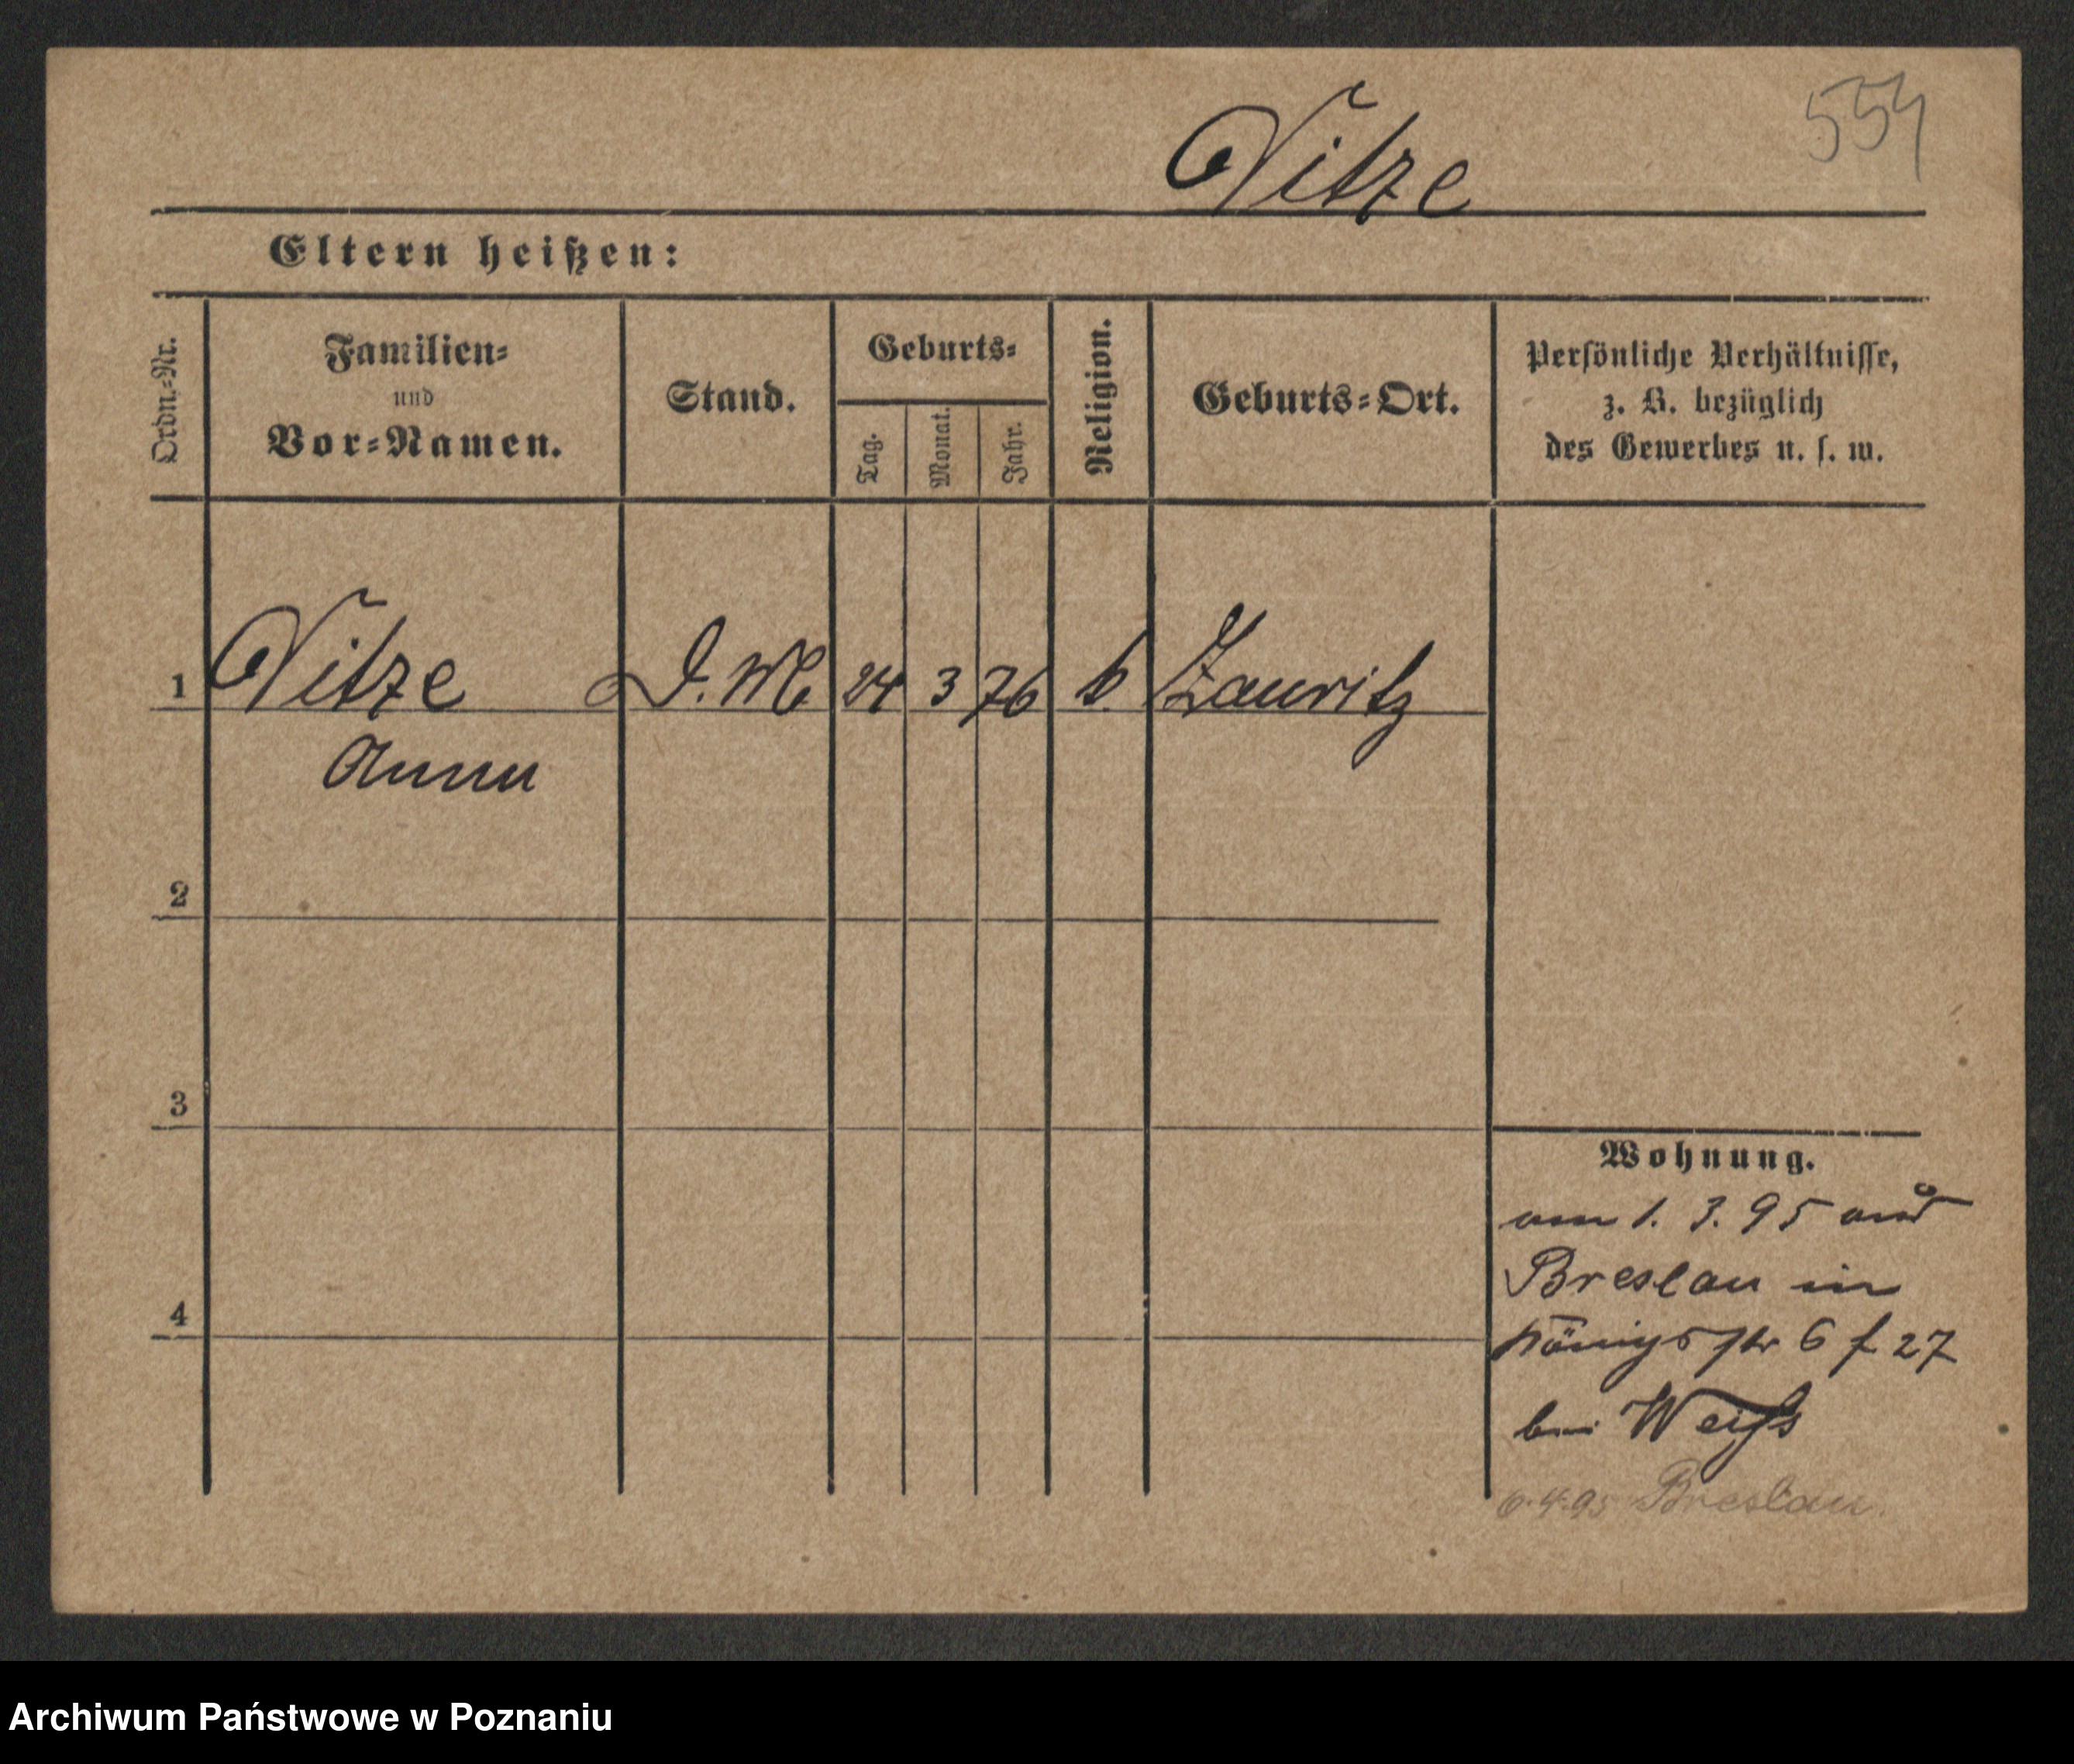 554
Nitze
Eltern heißen:
Ordn.-Nr.
Familien-
und
Vor-Namen.
Stand.
Geburts-
Tag.
Monat.
Jahr.
Religion.
Geburts-Ort.
Persönliche Verhältnisse,
z. B. bezüglich
des Gewerbes u. s. w.
1 Nitze D. M 24 3 76 k. Zauritz
Anna
2
3
4
Wohnung.
am 1. 3. 95 aus
Breslau in
Königsstr 6 f 27
bei Weiß
6.4.95 Breslau.
Archiwum Państwowe w Poznaniu